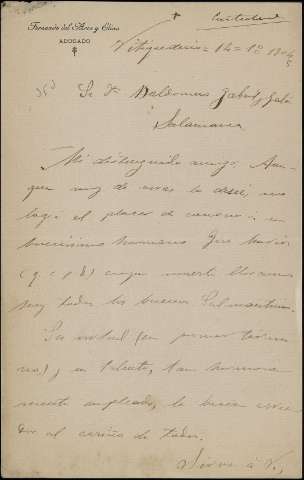 Fernando del Arco y Elías
ABOGADO
Contestada
Vitigudino = 14 = 1º 1905
Sr. Dn. Baldomero Gabriel y Galán
Salamanca
Mi distinguido amigo: Aun-
que muy de veras lo deseé, no
logré el placer de conocer á su
buenísimo hermano José María
(q. e. p. d.) cuya muerte lloramos
hoy todos los buenos Salmantinos.
Su virtud (en primer término
no), y su talento, tan hermosa-
mente empleado, le hacen acree-
dor al cariño de todos.
Sirva á V.,